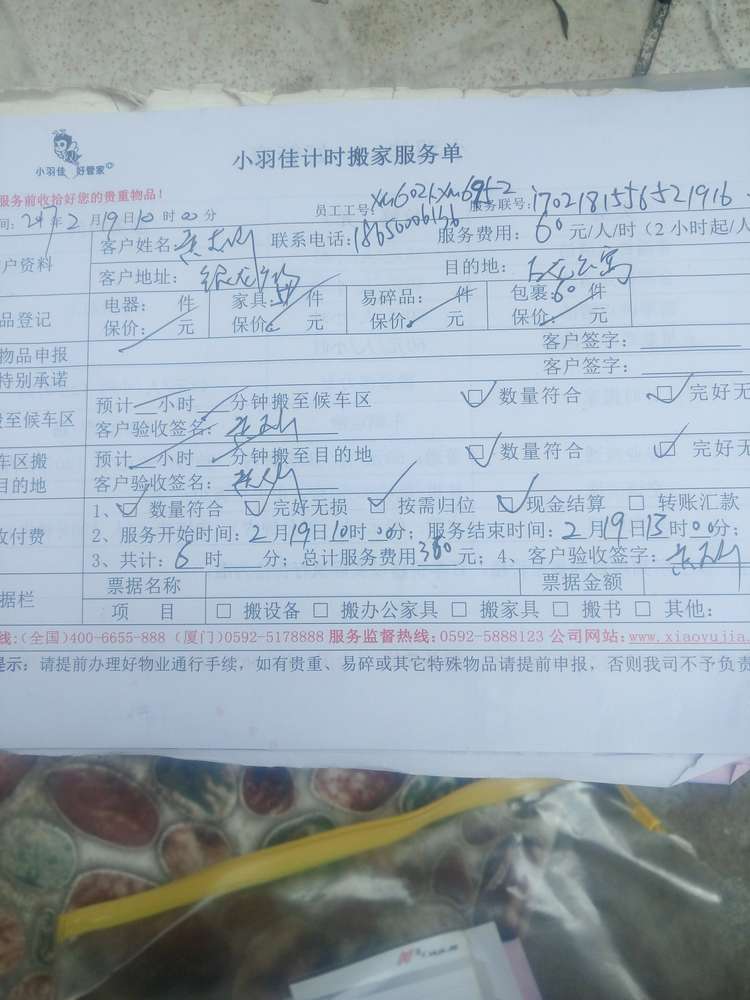 小羽佳 好管家
小羽佳计时搬家服务单
服务前收拾好您的贵重物品！
间：2017年2月19日10时00分 员工工号： 服务联号：1702181556521916
户资料 客户姓名： 联系电话：18650006166 服务费用：60元/人/时（2小时起/人
客户地址： 目的地：
品登记 电器： 件 家具： 件 易碎品： 件 包裹：60件
保价： 元 保价： 元 保价： 元 保价： 元
物品申报 客户签字：
特别承诺 客户签字：
搬至候车区 预计 小时 分钟搬至候车区 ☑ 数量符合 ☑ 完好无
客户验收签名：
车区搬 预计 小时 分钟搬至目的地 ☑ 数量符合 ☑ 完好无
目的地 客户验收签名：
1、☑ 数量符合 ☑ 完好无损 ☑ 按需归位 ☑ 现金结算 □ 转账汇款
收付费 2、服务开始时间：2月19日10时00分；服务结束时间：2月19日13时00分；
3、共计：6时 分；总计服务费用360元；4、客户验收签字：
据栏 票据名称 票据金额
项 目 □ 搬设备 □ 搬办公家具 □ 搬家具 □ 搬书 □ 其他：
线:(全国)400-6655-888 (厦门)0592-5178888 服务监督热线:0592-5888123 公司网站:www.xiaoyujia
提示：请提前办理好物业通行手续，如有贵重、易碎或其它特殊物品请提前申报，否则我司不予负责